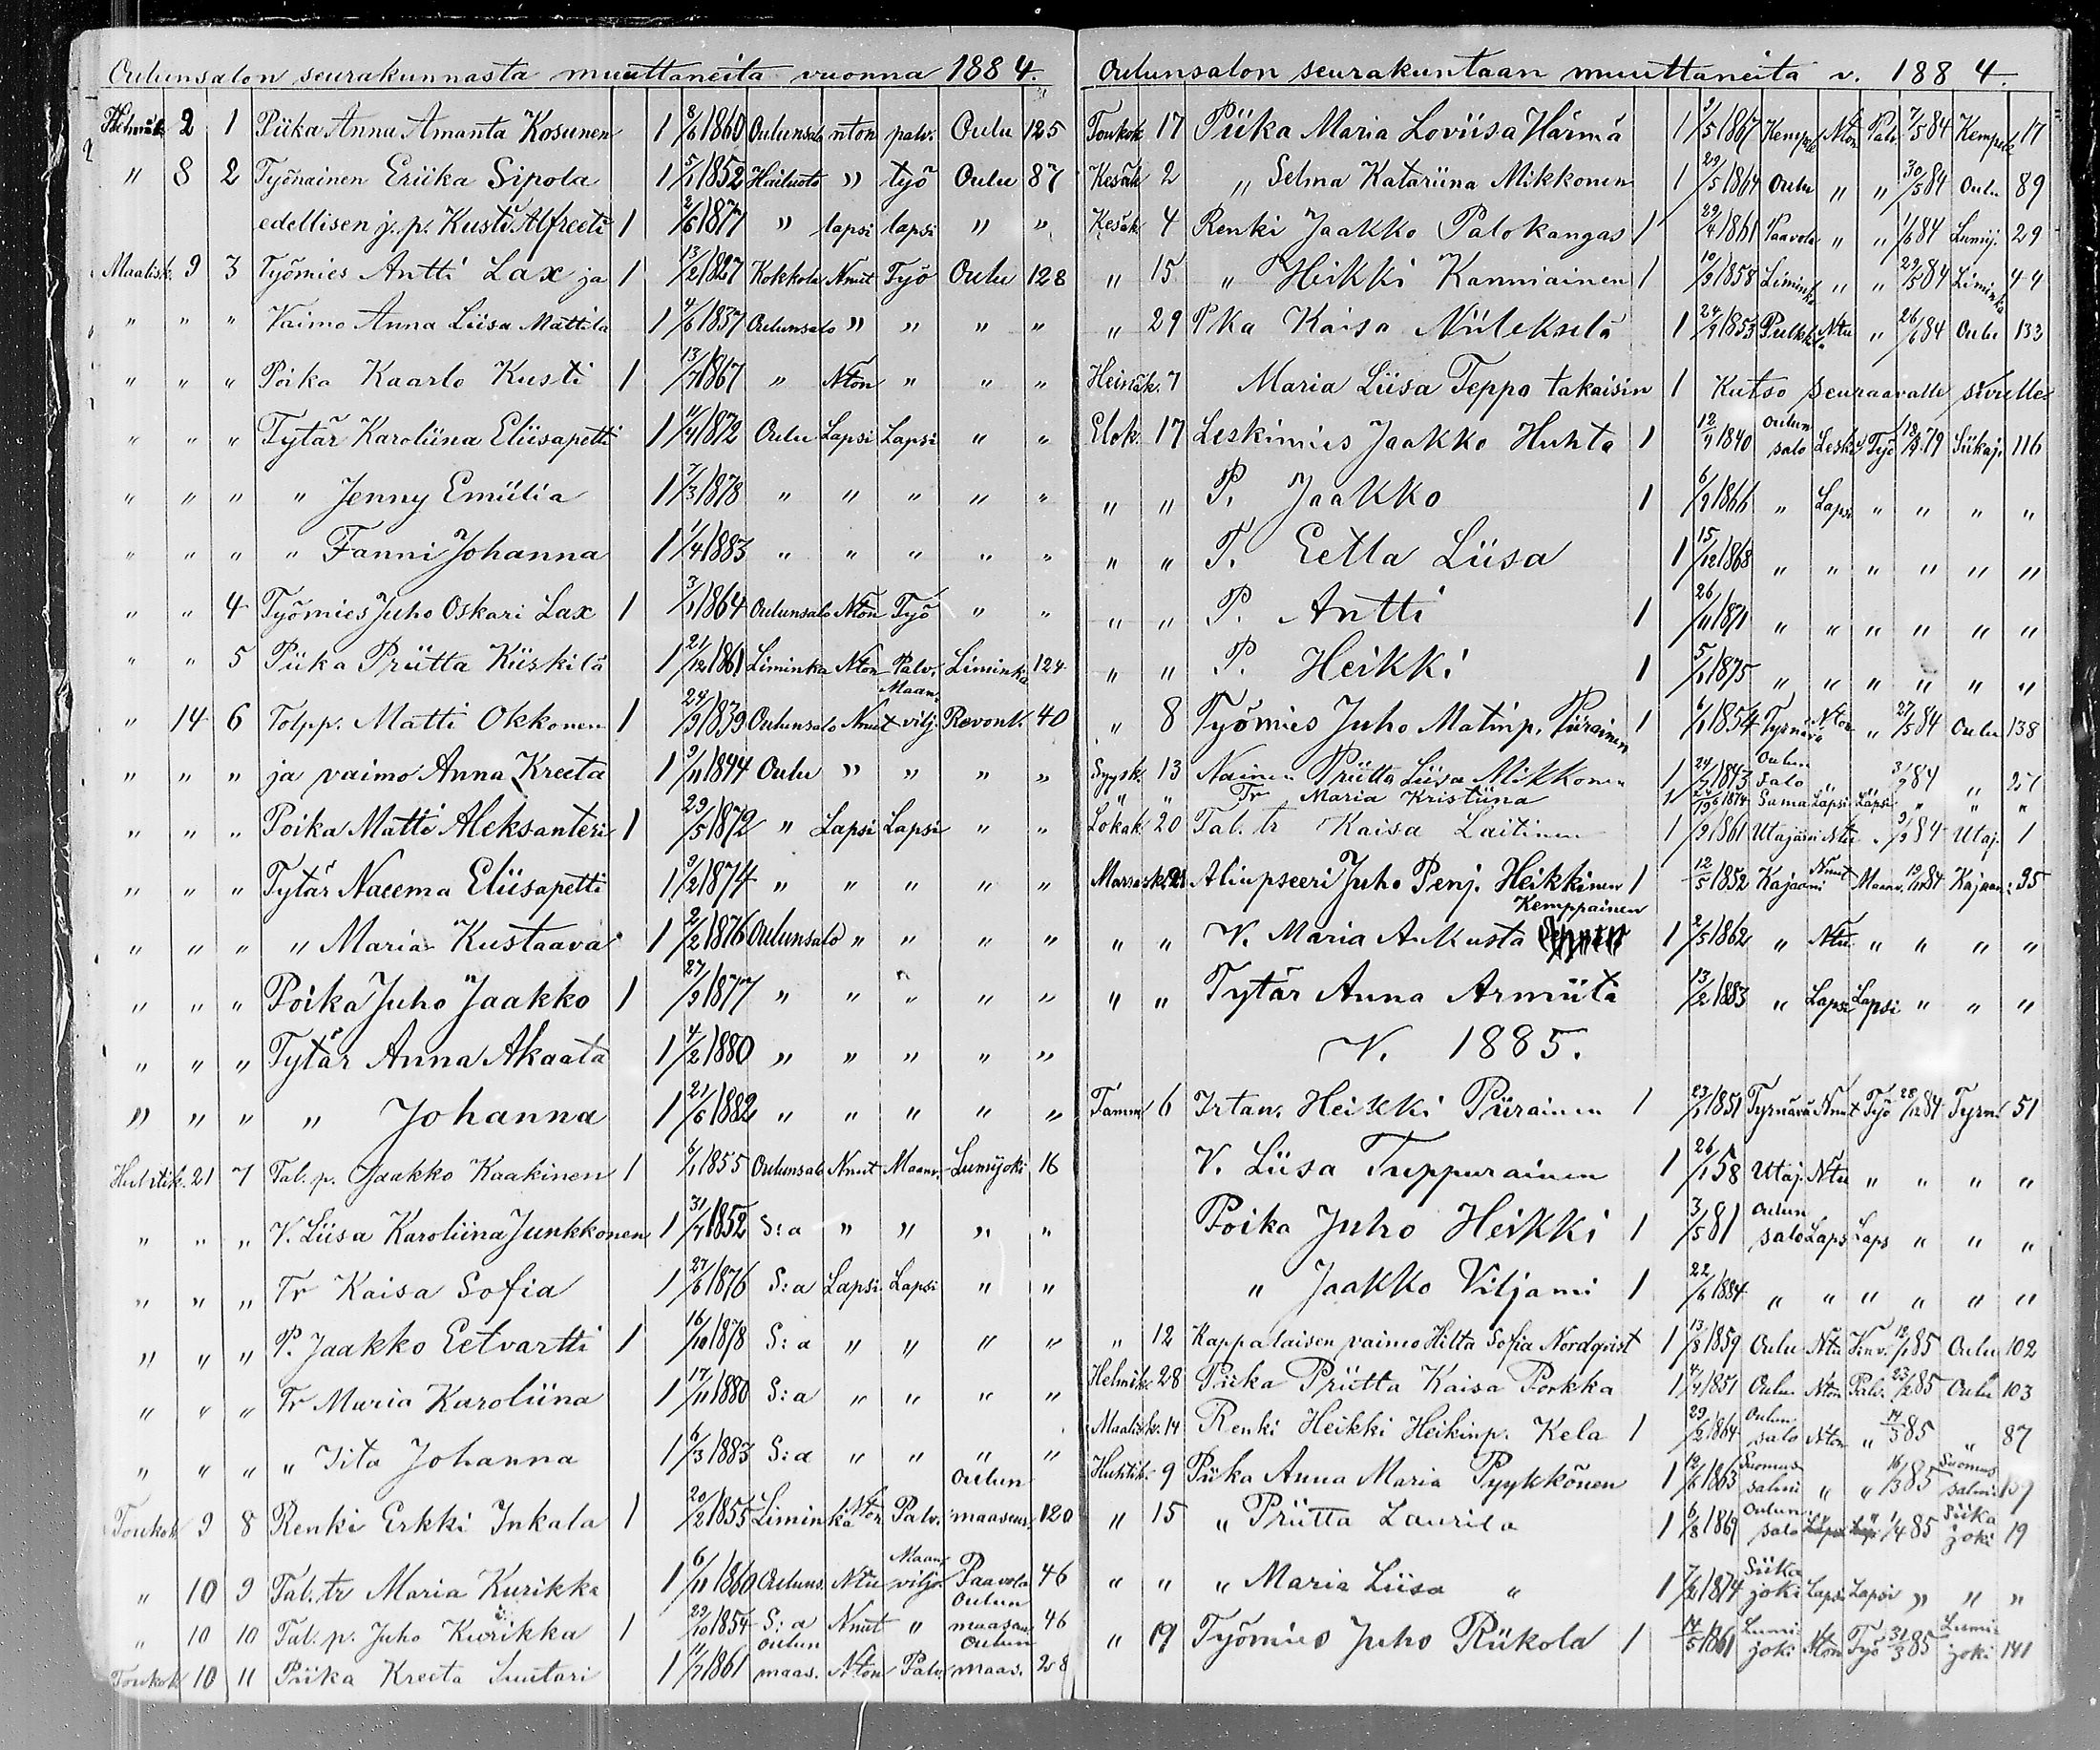 Oulunsalon seurakunnasta muuttaneita vuonna 1884.
Helmik. 2 1 Piika Anna Amanta Kosunen 1 8/6 1860 Oulunsalo nton palv. Oulu 125
" 8 2 Työnainen Eriika Sipola 1 5/1 1852 Hailuoto " työ Oulu 87
edellisen j. p. Kusti Alfreeti 1 2/6 1877 " lapsi lapsi " "
Maalisk. 9 3 Työmies Antti Lax ja 1 13/2 1827 Kokkola Nmut Työ Oulu 128
" " " Vaimo Anna Liisa Mattila 1 4/6 1837 Oulunsalo " " " "
" " " Poika Kaarlo Kusti 1 13/7 1867 " Nton " " "
" " " Tytär Karoliina Eliisapetti 1 11/4 1872 Oulu Lapsi Lapsi " "
" " " " Jenny Emiilia 1 7/3 1878 " " " " "
" " " " Fanni Johanna 1 1/4 1883 " " " " "
" " 4 Työmies Juho Oskari Lax 1 3/1 1864 Oulunsalo Nton Työ " "
" " 5 Piika Priitta Kiiskilä 1 21/12 1861 Liminka Nton Palv. Liminka 124
" 14 6 Tolpp. Matti Okkonen 1 24/9 1839 Oulunsalo Nmut Maanvilj. Revonl. 40
" " " ja vaimo Anna Kreeta 1 9/11 1844 Oulu " " " "
" " " Poika Matti Aleksanteri 1 29/5 1872 " Lapsi Lapsi " "
" " " Tytär Naeema Eliisapetti 1 9/2 1874 " " " " "
" " " " Maria Kustaava 1 2/2 1876 Oulunsalo " " " "
" " " Poika Juho Jaakko 1 27/9 1877 " " " " "
" " " Tytär Anna Akaata 1 4/2 1880 " " " " "
" " " " Johanna 1 21/6 1882 " " " " "
Huhtik. 21 7 Tal. p. Jaakko Kaakinen 1 6/1 1855 Oulunsalo Nmut Maanv. Lumijoki 16
" " " V. Liisa Karoliina Junkkonen 1 31/7 1852 S:a " " " "
" " " Tr Kaisa Sofia 1 27/6 1876 S:a Lapsi Lapsi " "
" " " P. Jaakko Eetvartti 1 16/10 1878 S:a " " " "
" " " Tr Maria Karoliina 1 17/11 1880 S:a " " " "
" " " " Iita Johanna 1 6/3 1883 S:a " " " "
Toukok 9 8 Renki Erkki Inkala 1 20/2 1855 Liminka Nton Palv. Oulun maaseur. 120
" 10 9 Tal. tr Maria Kurikka 1 6/11 1860 Ouluns. Ntu Maanvilj. Paavola 46
" 10 10 Tal. p. Juho Kurikka 1 29/10 1854 S:a Nmut " Oulun maaseu. 46
Toukok 10 11 Piika Kreeta Suutari 1 11/7 1861 Oulun maas. Nton Palv. Oulun maas. 28
Oulunsalon seurakuntaan muuttaneita v. 1884.
Toukok. 17 Piika Maria Loviisa Härmä 1 9/5 1867 Kempele Nton Palv. 7/5 84 Kempele 17
Kesäk 2 " Selma Katariina Mikkonen 1 29/5 1864 Oulu " " 30/5 84 Oulu 89
Kesäk 4 Renki Jaakko Palokangas 1 29/4 1861 Paavola " " 1/6 84 Lumij. 29
" 15 " Heikki Kanniainen 1 10/9 1858 Liminka " " 29/5 84 Liminka 44
" 29 Pka Kaisa Niileksela 1 24/9 1853 Pulkkila Ntu " 26/6 84 Oulu 133
Heinäk. 7 Maria Liisa Teppo takaisin 1 Katso seuraavalle sivulle
Elok. 17 Leskimies Jaakko Huhta 1 12/9 1840 Oulunsalo Leski Työ 79 Siikaj. 116
" " P. Jaakko 1 6/9 1866 " Lapsi " " " "
" " T. Eetla Liisa 1 15/12 1868 " " " " " "
" " P. Antti 1 26/11 1871 " " " " " "
" " P. Heikki 1 5/1 1875 " " " " " "
" 8 Työmies Juho Matinp. Piirainen 1 6/1 1854 Tyrnävä Nton " 27/5 84 Oulu 138
Syysk. 13 Nainen Priitta Liisa Mikkonen 1 24/9 1843 Oulunsalo 3/9 84 " 27
" " Tr Maria Kristiina 1 1874 Sama Lapsi Lapsi " " "
Lokak 20 Tal. tr Kaisa Laitinen 1 1861 Utajärvi Ntu " 9/9 84 Utaj. 1
Marrask. 21 Aliupseeri Juho Penj. Heikkinen 1 12/5 1852 Kajaani Nmut Maanv. 84 Kajaani 95
" " V. Maria Aukusta Kemppainen 1 2/5 1862 " Ntu " " " "
" " Tytär Anna Armiita 13/2 1883 " Lapsi Lapsi " " "
V. 1885.
Tamm. 6 Irtan. Heikki Piirainen 1 23/1 1851 Tyrnävä Nmut Työ 28/12 84 Tyrn. 51
V. Liisa Tuppurainen 1 26/1 58 Utaj. Ntu " " " "
Poika Juho Heikki 1 3/5 81 Oulunsalo Laps Laps " " "
" Jaakko Viljami 1 22/6 1884 " " " " " "
" 12 Kappalaisen vaimo Hilta Sofia Nordqvist 1 13/8 1859 Oulu Ntu Virv. 12/1 85 Oulu 102
Helmik. 28 Piika Priitta Kaisa Porkka 1 4/4 1851 Oulu Nton Palv. 23/2 85 Oulu 103
Maalisk. 14 Renki Heikki Heikinp. Kela 1 29/2 1864 Oulunsalo Nton " 14/3 85 " 87
Huhtik. 9 Piika Anna Maria Pyykkönen 1 12/6 1863 Suomussalmi " " 16/3 85 Suomussalmi 139
" 15 " Priitta Laurila 1 6/8 1869 Oulunsalo " " 1/4 85 Siikajoki 19
" " " Maria Liisa " 1 7/2 1874 Siikajoki Lapsi Lapsi " " "
" 19 Työmies Juho Riikola 1 14/5 1861 Lumijoki Nton Työ 31/3 85 Lumijoki 141